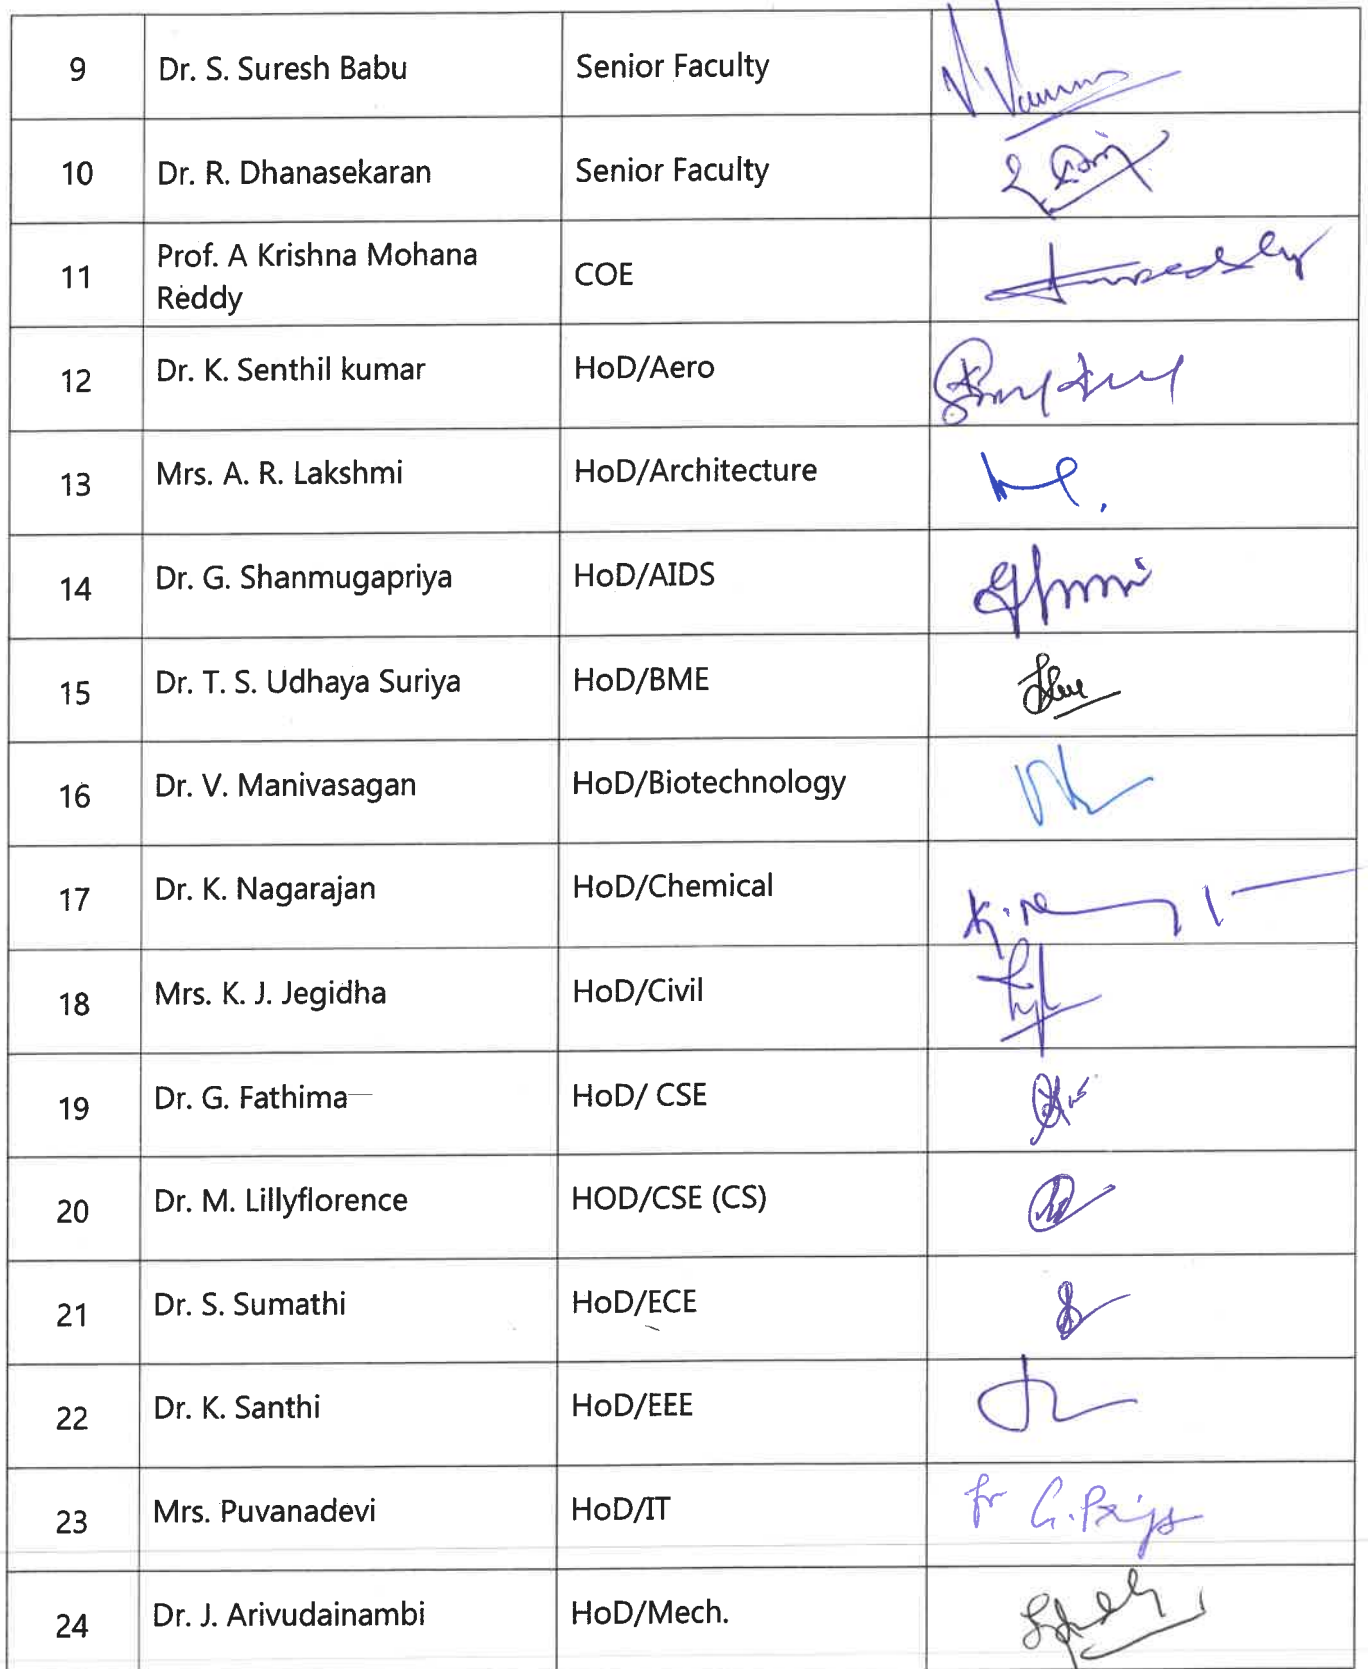 9 Dr. S. Suresh Babu Senior Faculty
10 Dr. R. Dhanasekaran Senior Faculty
11 Prof. A Krishna Mohana
Reddy COE
12 Dr. K. Senthil kumar HoD/Aero
13 Mrs. A. R. Lakshmi HoD/Architecture
14 Dr. G. Shanmugapriya HoD/AIDS
15 Dr. T. S. Udhaya Suriya HoD/BME
16 Dr. V. Manivasagan HoD/Biotechnology
17 Dr. K. Nagarajan HoD/Chemical
18 Mrs. K. J. Jegidha HoD/Civil
19 Dr. G. Fathima HoD/ CSE
20 Dr. M. Lillyflorence HOD/CSE (CS)
21 Dr. S. Sumathi HoD/ECE
22 Dr. K. Santhi HoD/EEE
23 Mrs. Puvanadevi HoD/IT for G.
24 Dr. J. Arivudainambi HoD/Mech.